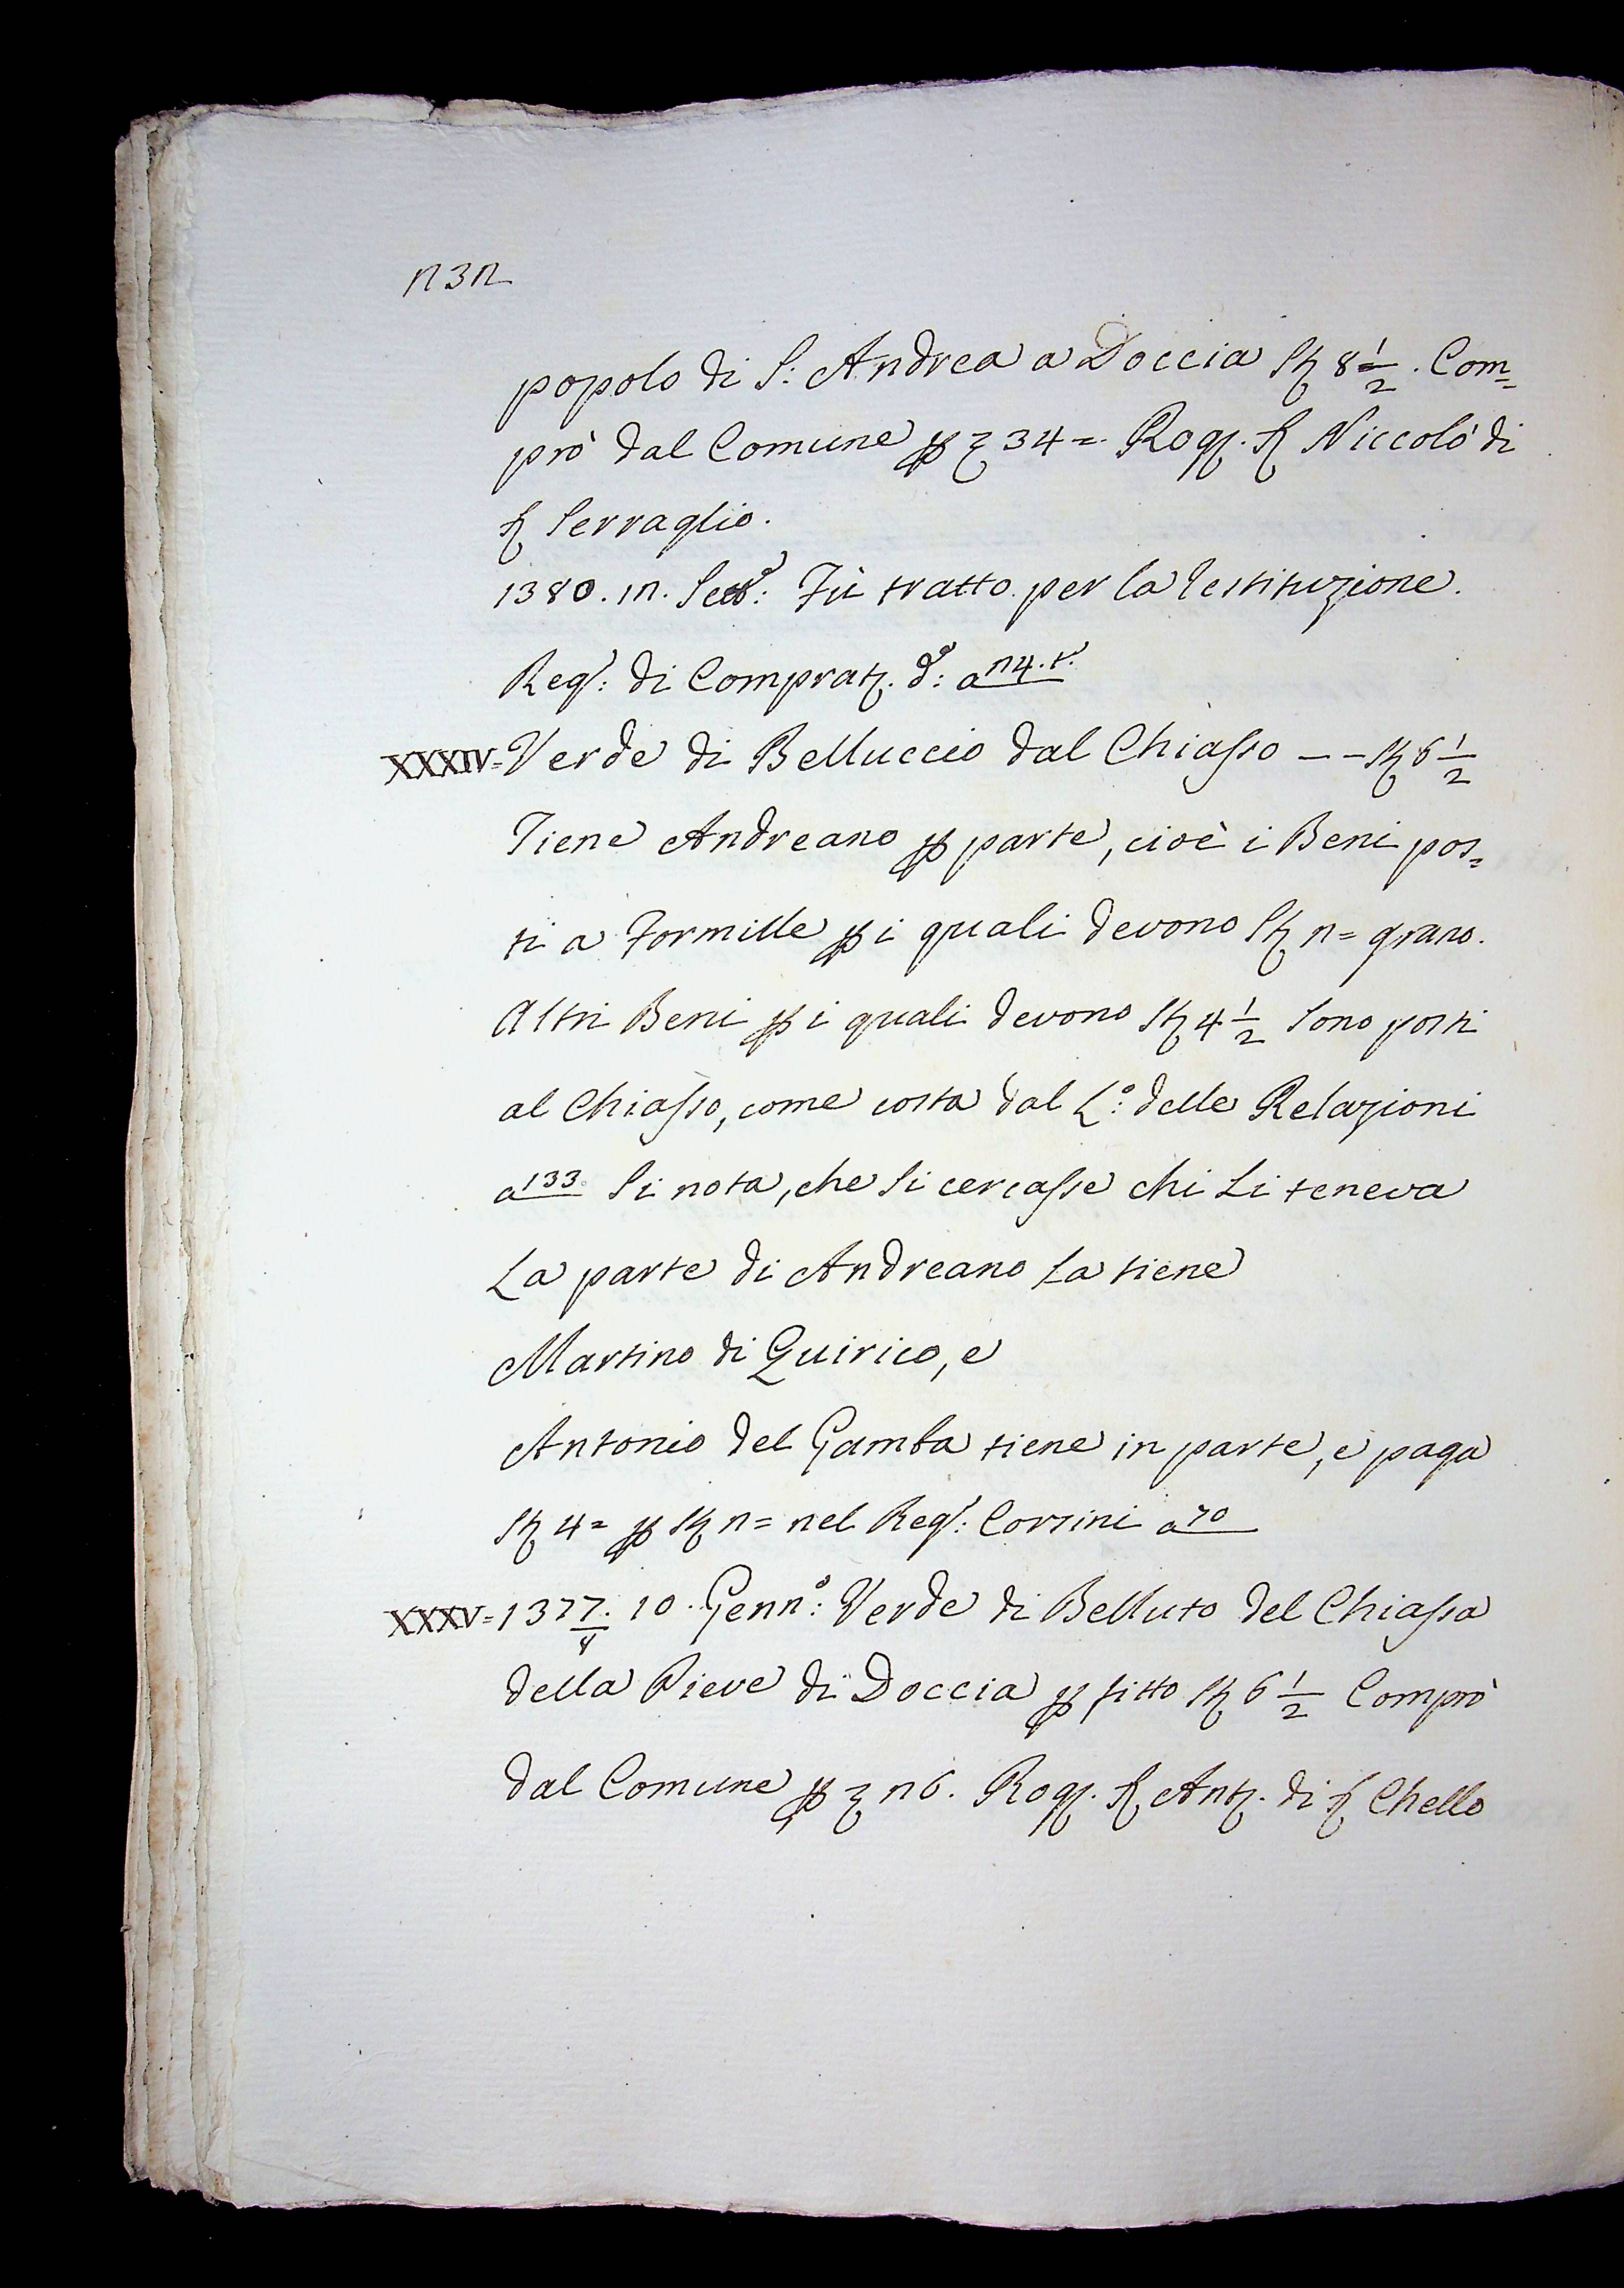 232
popolo di S: Andrea a Doccia St. 8 1/2. Com=
prò dal Comune p £ 34 =. Rog. S. Niccolò di
S. Serraglio.
1380. 12. Setto: Fù tratto per la restituzione.
Rego: di Comprat. do: a 24. t.
XXXIV= Verde di Belluccio dal Chiasso -- St. 6 1/2
Tiene Andreano p parte, cioè i Beni pos=
ti a Formille p i quali devono St. 2 = grano.
Altri Beni p i quali devono St. 4 1/2 sono posti
al Chiasso, come costa dal Lo: delle Relazioni
a 133. Si nota, che si cercasse chi Li teneva
La parte di Andreano La tiene
Martino di Quirico, e
Antonio del Gamba tiene in parte, e paga
St. 4 = p St. 2 = nel Rego: Corsini a 70
XXXV= 1377/8. 10. Genno: Verde di Belluto del Chiasso
della Pieve di Doccia p fitto St. 6 1/2 Comprò
dal Comune p £ 26. Rog. S. Ant. di S. Chello